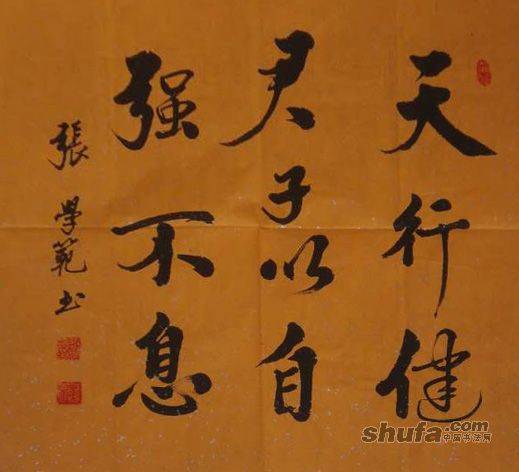 天行健
君子以自
强不息
張學範书
shufa.com
中国书法网